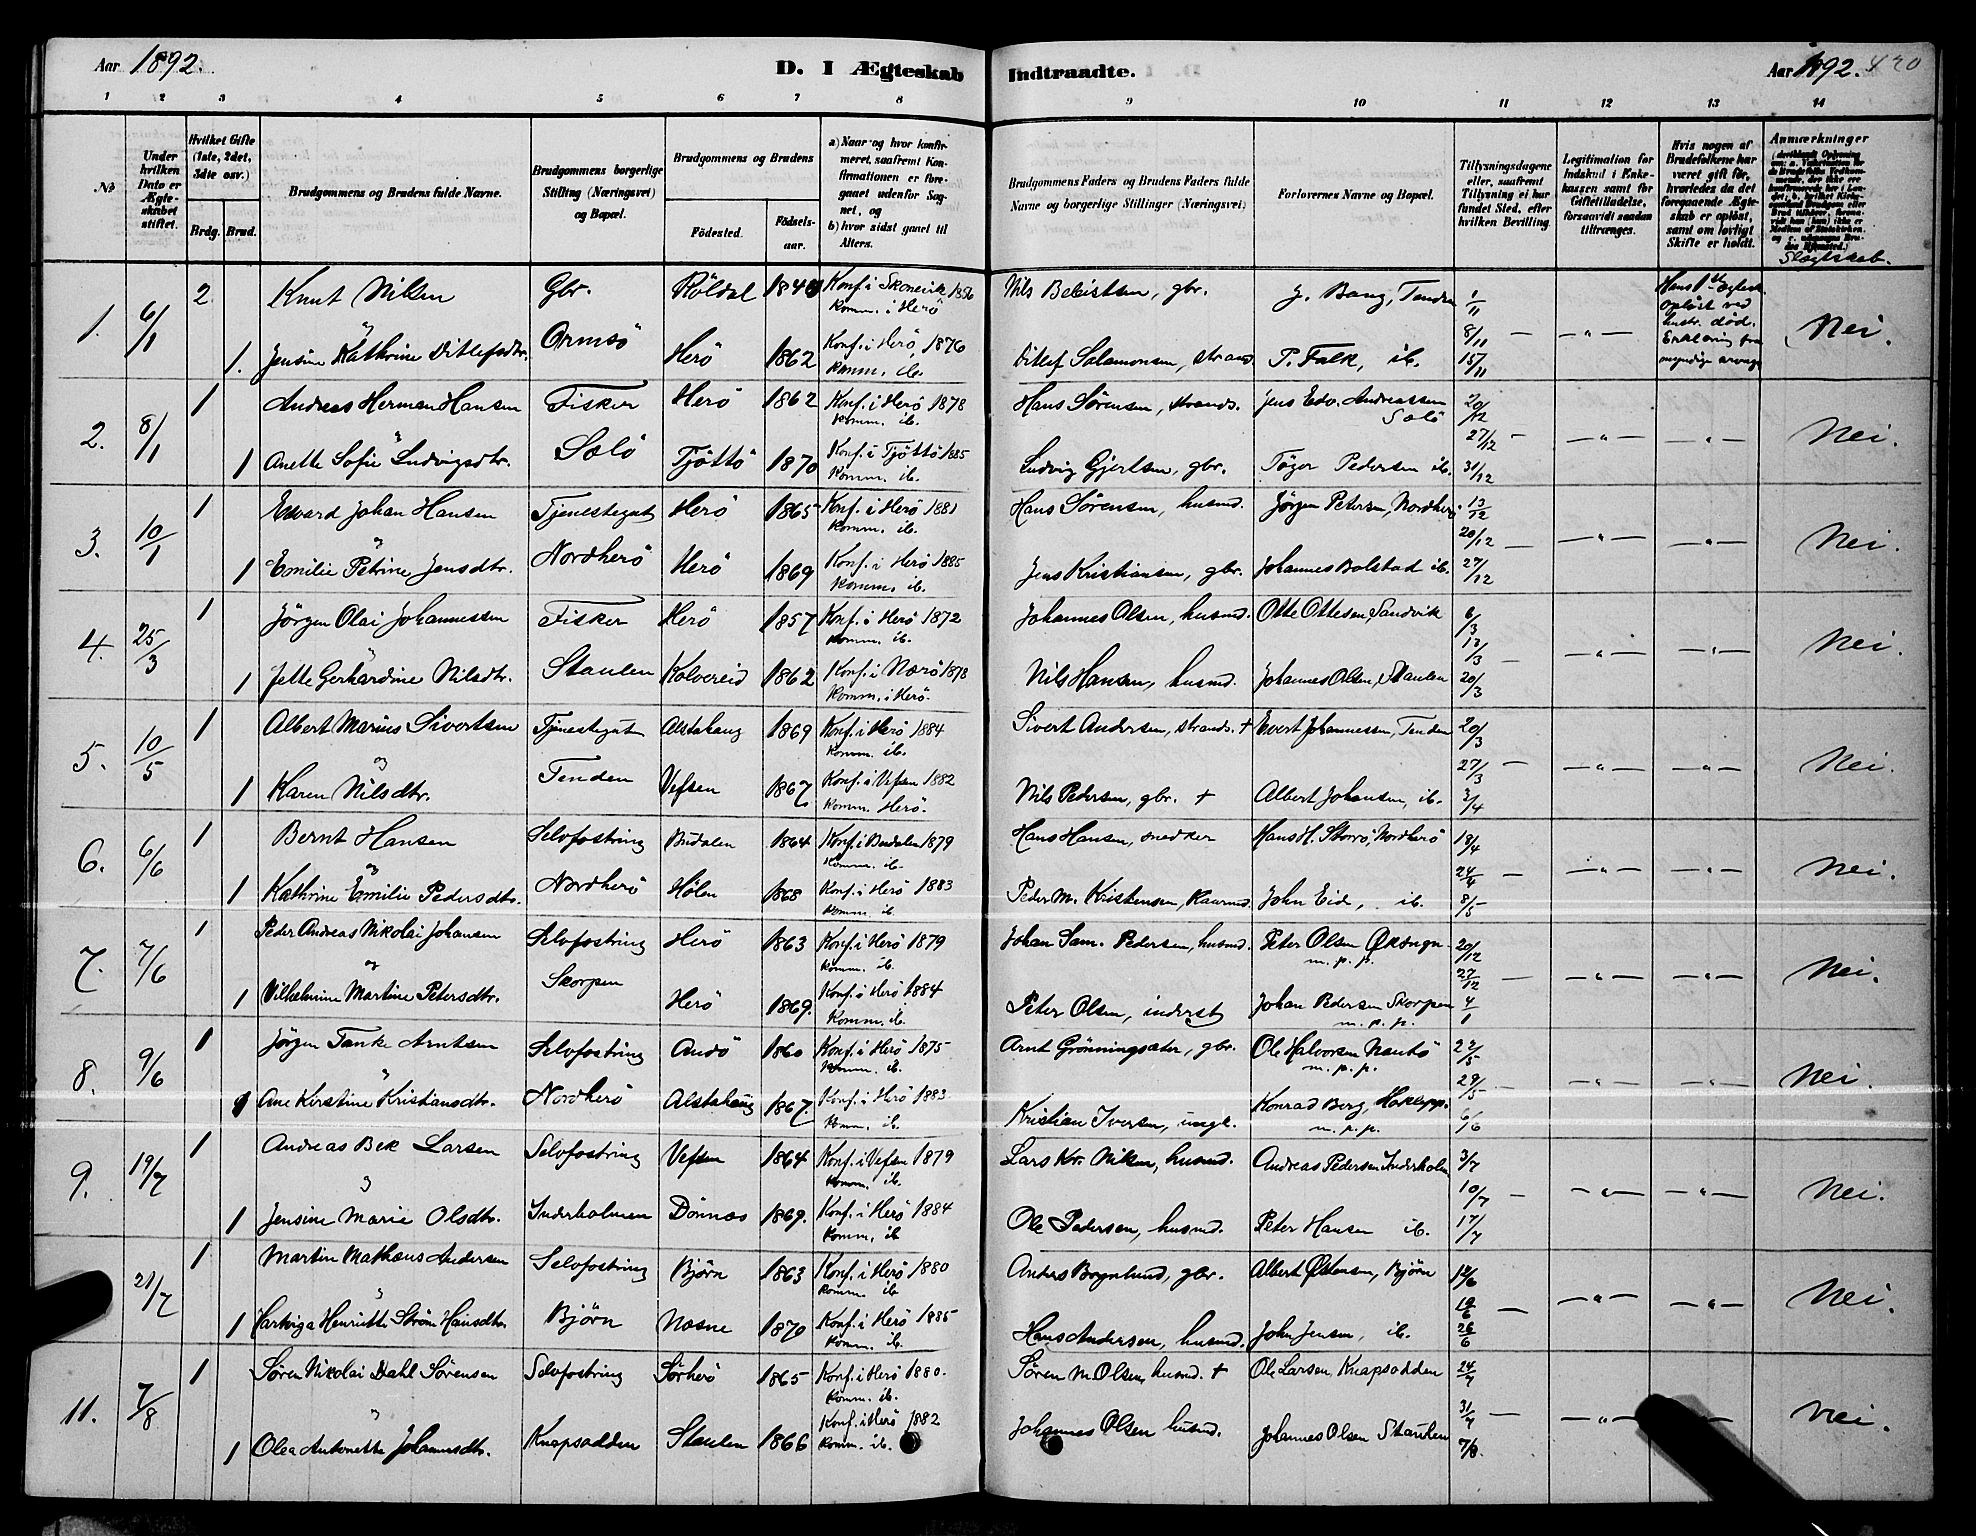 Aar 1892.
D. I Ægteskab Indtraadte.
Aar 1892. 420
1 2 3 4 5 6 7 8 9 10 11 12 13 14
№
Under hvilken Dato er Ægteskabet stiftet.
Hvilket Gifte (1ste, 2det, 3die osv.)
Brdg. Brud.
Brudgommens og Brudens fulde Navne.
Brudgommens borgerlige Stilling (Næringsvei) og Bopæl.
Brudgommens og Brudens
Fødested.
Fødselsaar.
a) Naar og hvor konfirmeret, saafremt Konfirmationen er foregaaet udenfor Sognet, og
b) hvor sidst gaaet til Alters.
Brudgommens Faders og Brudens Faders fulde Navne og borgerlige Stillinger (Næringsvei)
Forlovernes Navne og Bopæl.
Tillysningsdagene eller, saafremt Tillysning ei har fundet Sted, efter hvilken Bevilling.
Legitimation for Indskud i Enkekassen samt for Giftetilladelse, forsaavidt saadan tiltrænges.
Hvis nogen af Brudefolkene har været gift før, hvorledes da det foregaaende Ægteskab er opløst, samt om lovligt Skifte er holdt.
Anmærkninger
Slægtskab.
1. 6/1 2 Knut Nilsen Gbr. Röldal Konf. i Skonevik 1856 komm. i Herö Nils Beleistsen, gbr. J. Bang, Tenden 1/11
Ormsö 8/11 — „ — Hans 1ste Ægtesk. opløst ved hustr. död. Erklæring fra myndige arvinge Nei.
1. Jensine Kathrine Ditlefsdtr. Herö 1862 Konf. i Herö, 1876 komm. ib. Ditlef Salamonsen, strands. P. Falk, ib. 15/11
2. 8/1 1 Andreas Herman Hansen Fisker Herö 1862 Konf. i Herö 1878 komm. ib. Hans Sörensen, strands. Jens Edv. Andreassen Solö 20/12
og Solö 27/12 — — „ — — „ — Nei.
1 Anette Sofie Ludvigsdtr. Tjöttö 1870 Konf. i Tjöttö 1885 komm. ib. Ludvig Gjertsen, gbr. Töger Pedersen ib. 31/12
3. 10/1 1 Edvard Johan Hansen Tjenestegut Herö 1865 Konf. i Herö 1881 komm. ib. Hans Sörensen, husmd. Jörgen Petersen, Nordherö 13/12
og Nordherö 20/12 — — „ — — „ — Nei.
1 Emilie Petrine Jensdtr. Herö 1869 Konf. i Herö 1885 komm. ib. Jens Kristiansen, gbr. Johannes Bolstad ib. 27/12
4. 25/3 1 Jörgen Olai Johannessen Fisker Herö 1857 Konf. i Herö 1872 komm. ib. Johannes Olsen, husmd. Otte Ottesen, Sandvik 6/3
13/3 — — „ — — „ — Nei.
1 Jette Gerhardine Nilsdtr. Staulen Kolvereid 1862 Konf. i Nærö 1878 Komm. i Herö. Nils Hansen, husmd. Johannes Olsen, Staulen 20/3
5. 10/5 1 Albert Marius Sivertsen Tjenestegut Alstahaug 1869 Konf. i Herö 1884 komm. ib. Sivert Andersen, strands. + Evert Johannessen, Tenden 20/3
og Tenden 27/3 — — „ — — „ — Nei.
1 Karen Nilsdtr. Vefsen 1867 Konf. i Vefsen 1882 komm. Herö. Nils Pedersen, gbr. + Albert Johansen, ib. 3/4
6. 6/6 1 Bernt Hansen Selvfostring Budalen 1864 Konf. i Budalen 1879 komm. ib. Hans Hansen, snedker Hans H. Storrö, Nordherö 18/4
og Nordherö 24/4 — — „ — — „ — Nei.
1 Kathrine Emilie Pedersdtr. Hölen 1868 Konf. i Herö 1883 komm. ib. Peder M. Kristensen, Kaarmd. John Eid, ib. 8/5
7. 7/6 1 Peder Andreas Nikolai Johansen Selvfostring Herö 1863 Konf. i Herö 1879 komm. ib. Johan Sam. Pedersen, husmd. Peter Olsen Öksngn. m. p. p. 20/12
og Skorpen 27/12 — — „ — — „ — Nei.
1 Vilhelmine Martine Petersdtr. Herö 1869. Konf. i Herö 1884 Komm. ib. Peter Olsen, inderst Johan Pedersen Skorpen m. p. p. 4/1
8. 9/6 1 Jörgen Tanke Arntsen Selvfostring Andö 1860 Konf. i Herö 1875 komm. ib. Arnt Grönningsæter, gbr. Ole Halvorsen Nautö m. p. p. 22/5
29/5 — — „ — — „ — Nei.
1 Ane Kerstine Kristiansdtr. Nordherö Alstahaug 1867. Konf. i Herö 1883 Komm. ib. Kristian Iversen, ungk. Konrad Berg, m. p. p. 6/6
9. 19/7 1 Andreas Bek Larsen Selvfostring Vefsen 1864 Konf. i Vefsen 1879 komm. ib. Lars Kr. Nilsen, husmd. Andreas Pedersen Inderholm 3/7
og 10/7 — — „ — — „ — Nei.
1 Jensine Marie Olsdtr. Inderholmen Dönnæs 1869. Konf. i Herö 1884 Komm. ib Ole Pedersen, husmd. Peter Hansen ib. 17/7
21/7 1 Martin Mathæus Andersen Selvfostring Bjørn 1863 Konf. i Herö 1880 komm. ib Anders Bognlund, gbr. Albert Østensen, Bjørn 12/6
19/6 — — „ — — „ — Nei.
1 Hartviga Henriette Ström Hansdtr. Björn Næsne 1870 Konf. i Herö 1885 Komm. ib. Hans Andersen, husmd. John Jensen, ib. 26/6
11. 7/8 1 Sören Nikolai Dahl Sörensen Selvfostring Sörherö 1865 Konf. i Herö 1880. komm. ib. Sören M. Olsen, husmd. + Ole Larsen, Knapsodden 24/7
31/7 — — „ — — „ — Nei.
1 Olea Antonette Johannesdtr. Knapsodden Staulen 1866 Konf. i Herö 1882 komm. ib. Johannes Olsen husmd. Johannes Olsen Staulen 7/8.